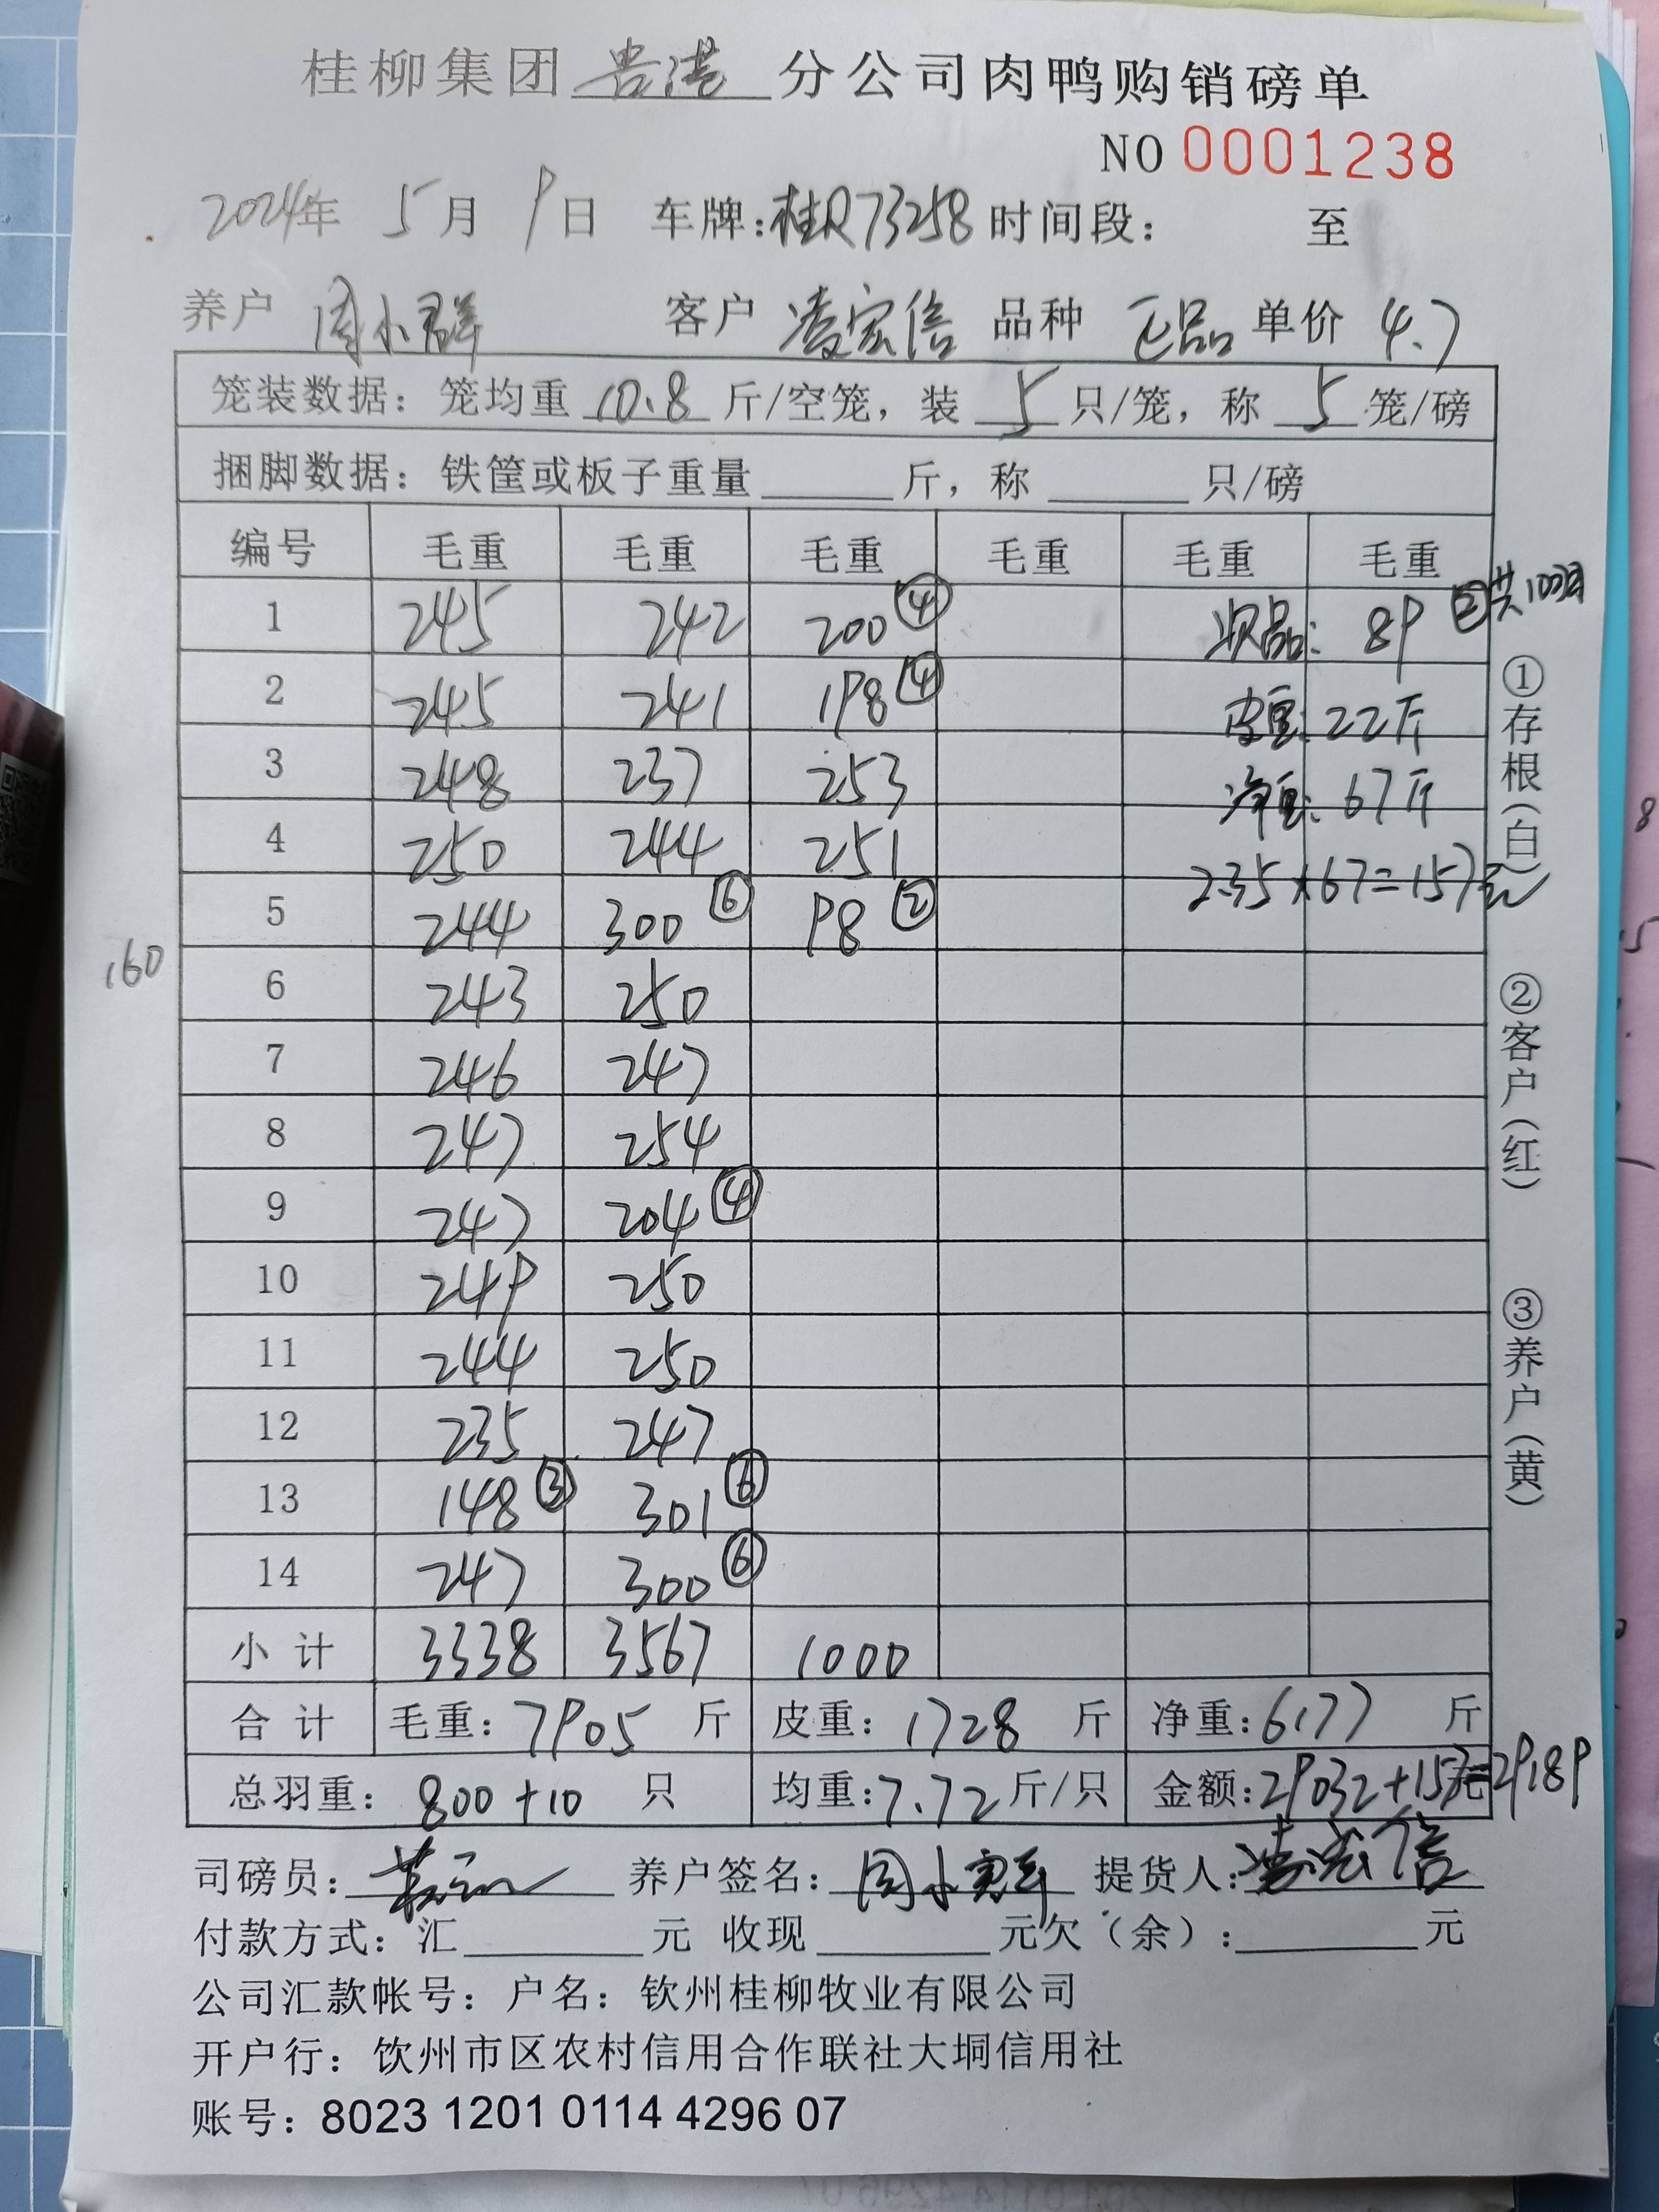 桂柳集团 贵港 分公司肉鸭购销磅单
NO 0001238
2024年 5月 9日 车牌:桂R73258 时间段: 至
养户 周小群 客户 凌宏信 品种 正品 单价 4.7
笼装数据:笼均重 10.8 斤/空笼,装 5 只/笼,称 5 笼/磅
捆脚数据:铁筐或板子重量 斤,称 只/磅
编号 毛重 毛重 毛重 毛重 毛重 毛重
1 245 242 200 ④ 次品: 89 ②共10只
2 245 241 198 ④ 皮重: 22斤
3 248 237 253 净重: 67斤
4 250 244 251 2.35×67=157元
5 244 300 ⑥ 98 ②
160
6 243 250
7 246 247
8 247 254
9 247 204 ④
10 249 250
11 244 250
12 235 247
13 148 ③ 301 ⑥
14 247 300 ⑥
小计 3338 3567 1000
合计 毛重:7905 斤 皮重:1728 斤 净重:6177 斤
总羽重: 800+10 只 均重:7.72 斤/只 金额:29032+157元=29189
司磅员: 养户签名:周小群 提货人:凌宏信
付款方式:汇 元 收现 元欠(余): 元
公司汇款帐号:户名:钦州桂柳牧业有限公司
开户行:钦州市区农村信用合作联社大垌信用社
账号:8023 1201 0114 4296 07
①存根(白)
②客户(红)
③养户(黄)